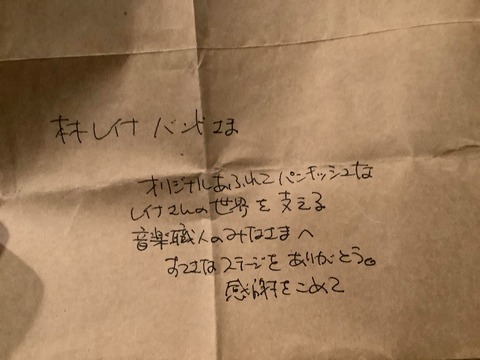 林レイナ バンドさま
オリジナルあふれてパンキッシュな
レイナさんの世界を支える
音楽職人のみなさまへ
すてきなステージをありがとう。
感謝をこめて